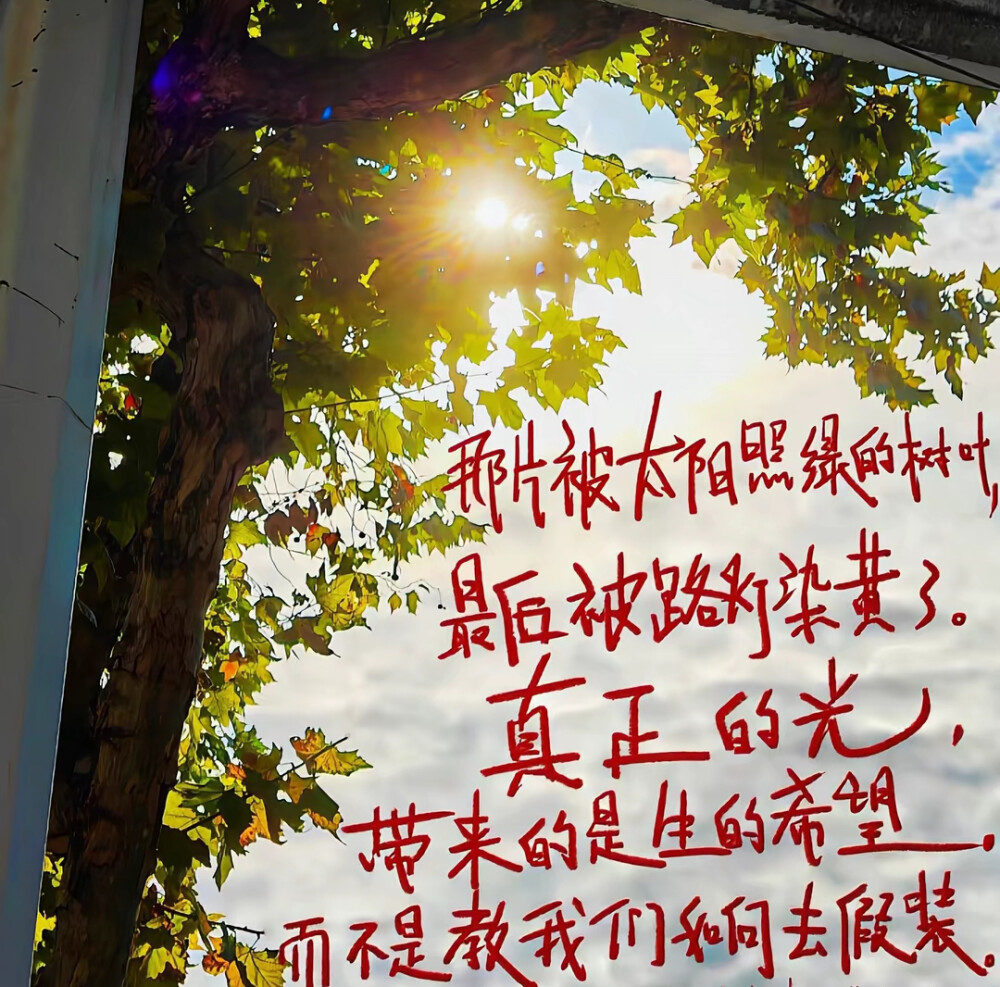 那片被太阳照绿的树叶,
最后被路灯染黄了。
真正的光,
带来的是生的希望.
而不是教我们如何去假装。